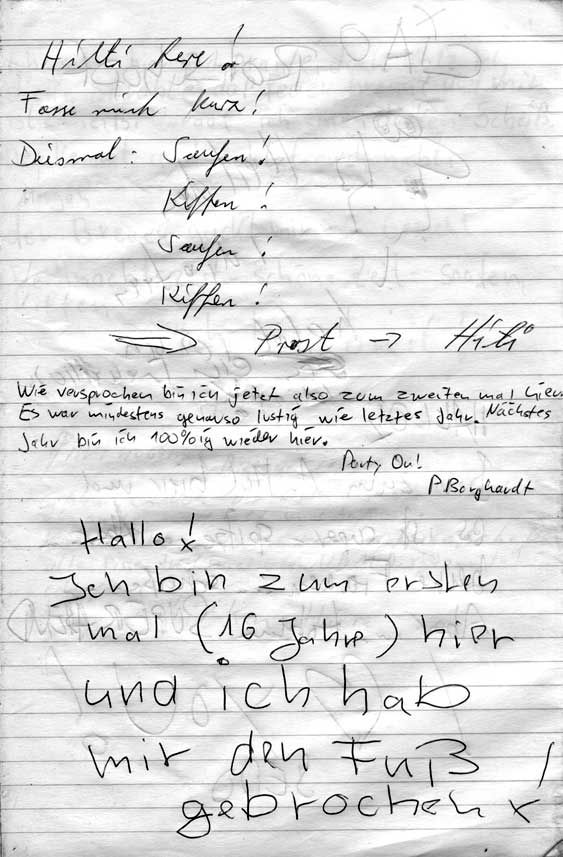 Hilti here!
Fasse mich kurz!
Diesmal: Saufen!
Kiffen!
Saufen!
Kiffen!
⇒ Prost → Hilti
Wie versprochen bin ich jetzt also zum zweiten mal hier.
Es war mindestens genauso lustig wie letztes Jahr. Nächstes
Jahr bin ich 100%ig wieder hier.
Party On!
P.Borghardt
Hallo!
Ich bin zum ersten
mal (16 Jahre) hier
und ich hab
mir den Fuß
gebrochen!